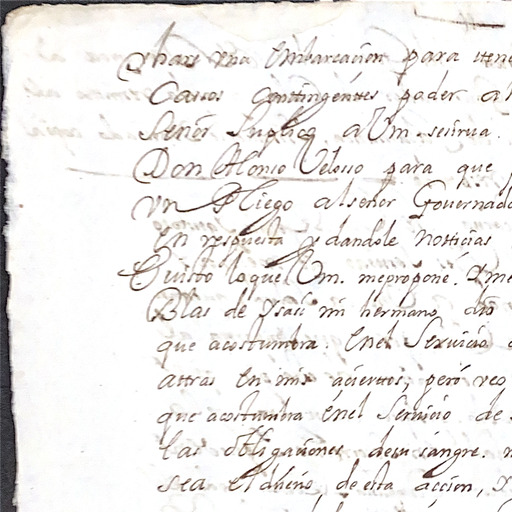 una Embarcasion para
Casos Conttingenttes poder a
Señor Suplico a Vm. se sirva
Don Alonso Veloso para que
Un Pliego al señor Governad
En respuesta y dandole Notticias
Visto lo que Vm. me propone.
Blas de Ysasi mi hermano, dio
que acostumbra. En el Servicio
attras En mis aciertos, pero veo
que acostumbra En el Servicio de
las obligaciones de su sangre.
sea El dueño, de esta accion,